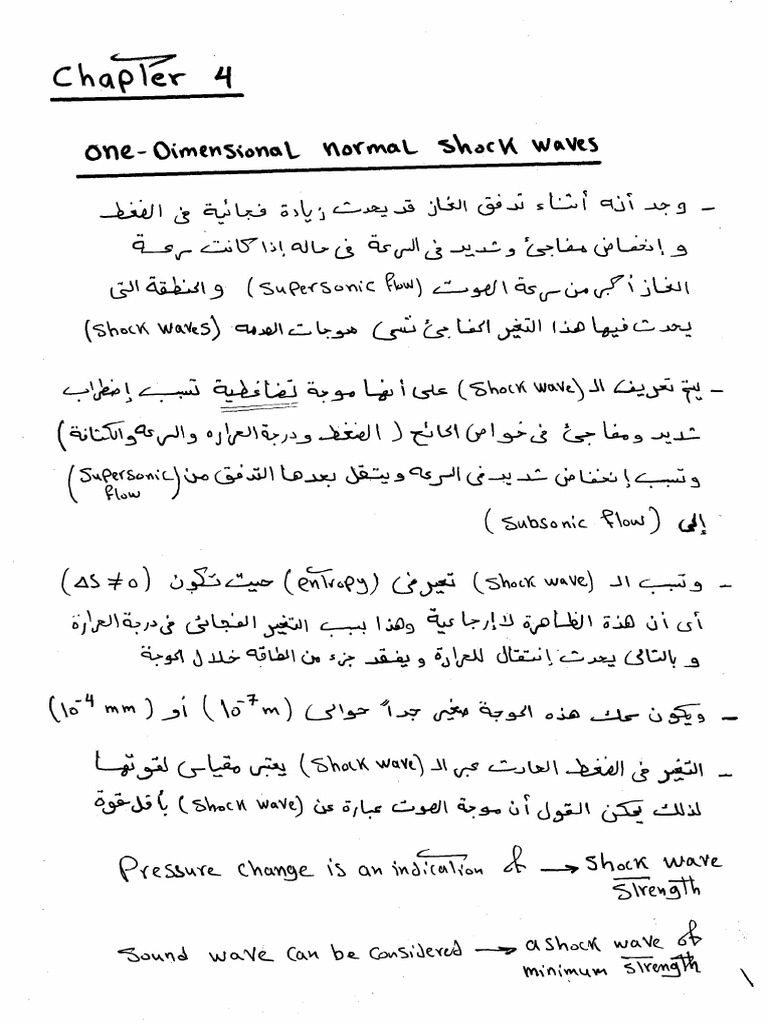 Chapter 4
One-Dimensional normal shock waves
- وجد أنه أثناء تدفق الغاز قد يحدث زيادة فجائية فى الضغط
و إنخفاض مفاجئ وشديد فى السرعة فى حاله إذا كانت سرعة
الغاز أكبر من سرعة الصوت (supersonic flow) والمنطقة التى
يحدث فيها هذا التغير المفاجئ تسمى موجات الصدمه (Shock waves)
- يتم تعريف الـ (shock wave) على أنها موجة تضاغطية تسبب إضطراب
شديد ومفاجئ فى خواص المائع (الضغط ودرجة الحراره والسرعه والكثافة)
وتسبب إنخفاض شديد فى السرعه وينتقل بعدها التدفق من (Supersonic flow)
إلى (subsonic flow)
- وتسبب الـ (shock wave) تغير فى (entropy) حيث تكون (ΔS ≠ 0)
أى أن هذة الظاهرة لاإرجاعية وهذا بسبب التغير الفجائى فى درجة الحرارة
و بالتالى يحدث إنتقال للحرارة ويفقد جزء من الطاقه خلال الموجة
- ويكون سمك هذه الموجة صغير جداً حوالى (10⁻⁷ m) أو (10⁻⁴ mm)
- التغير فى الضغط الحادث عبر الـ (shock wave) يعتبر مقياس لقوتها
لذلك يمكن القول أن موجة الصوت عبارة عن (shock wave) بأقل قوة
Pressure change is an indication of → shock wave strength
Sound wave can be considered → a shock wave of minimum strength
١